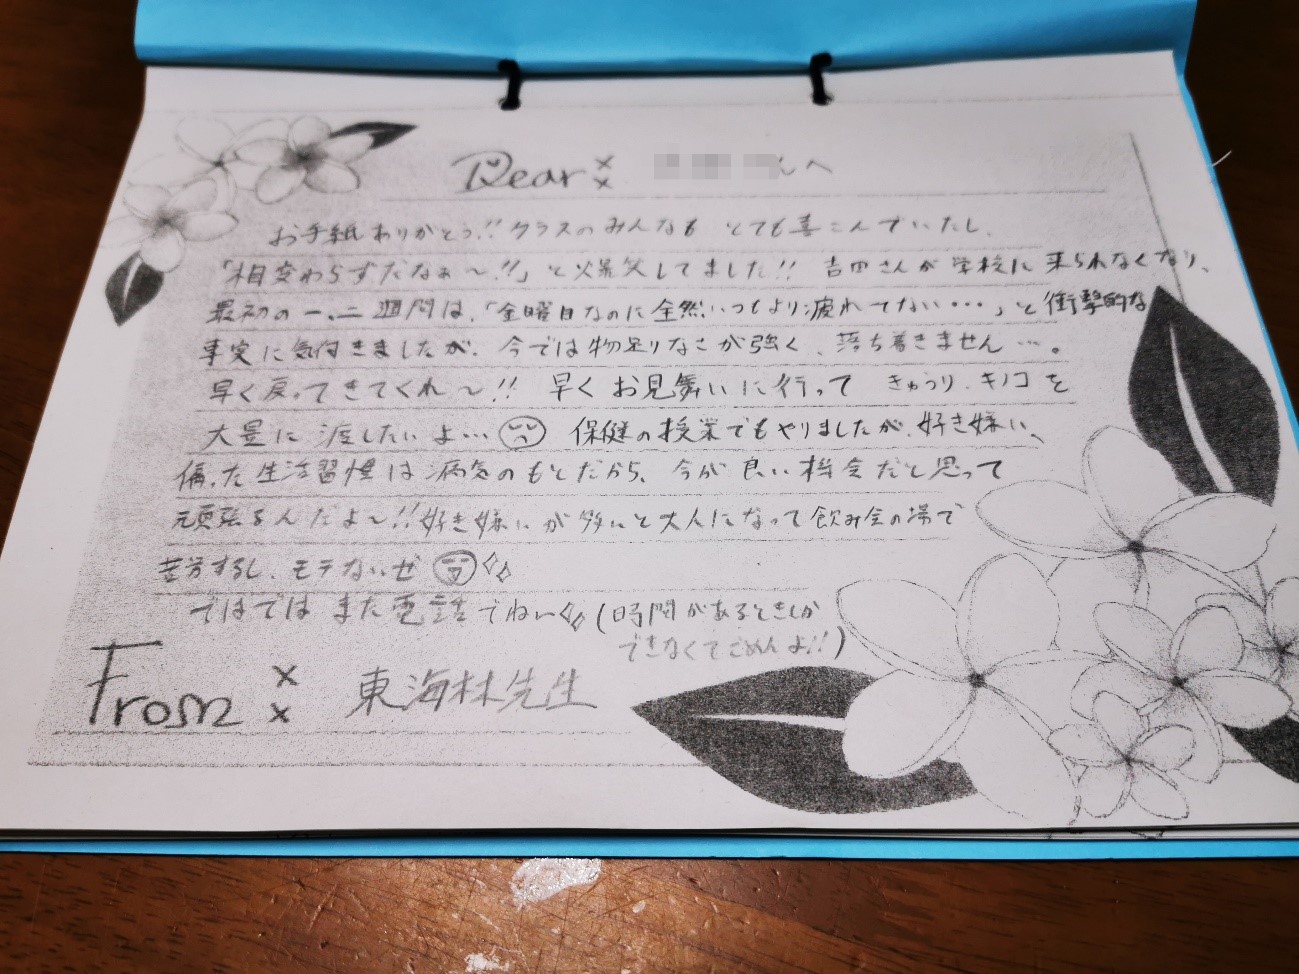 Dear:
んへ
お手紙ありがとう!!クラスのみんなも とても喜こんでいたし、
「相変わらずだなぁ〜!!」と爆笑してました!! 吉田さんが学校に来られなくなり、
最初の一、二週間は、「金曜日なのに全然いつもより疲れてない…」と衝撃的な
事実に気付きましたが、今では物足りなさが強く、落ち着きません…。
早く戻ってきてくれ〜!! 早くお見舞いに行って きゅうり、キノコを
大量に渡したいよ… 保健の授業でもやりましたが、好き嫌い、
偏った生活習慣は病気のもとだから、今が良い機会だと思って
頑張るんだよ〜!!好き嫌いが多いと大人になって飲み会の場で
苦労するし、モテないぜ
ではでは また電話でねー(時間があるときしか
できなくてごめんよ!!)
From: 東海林先生